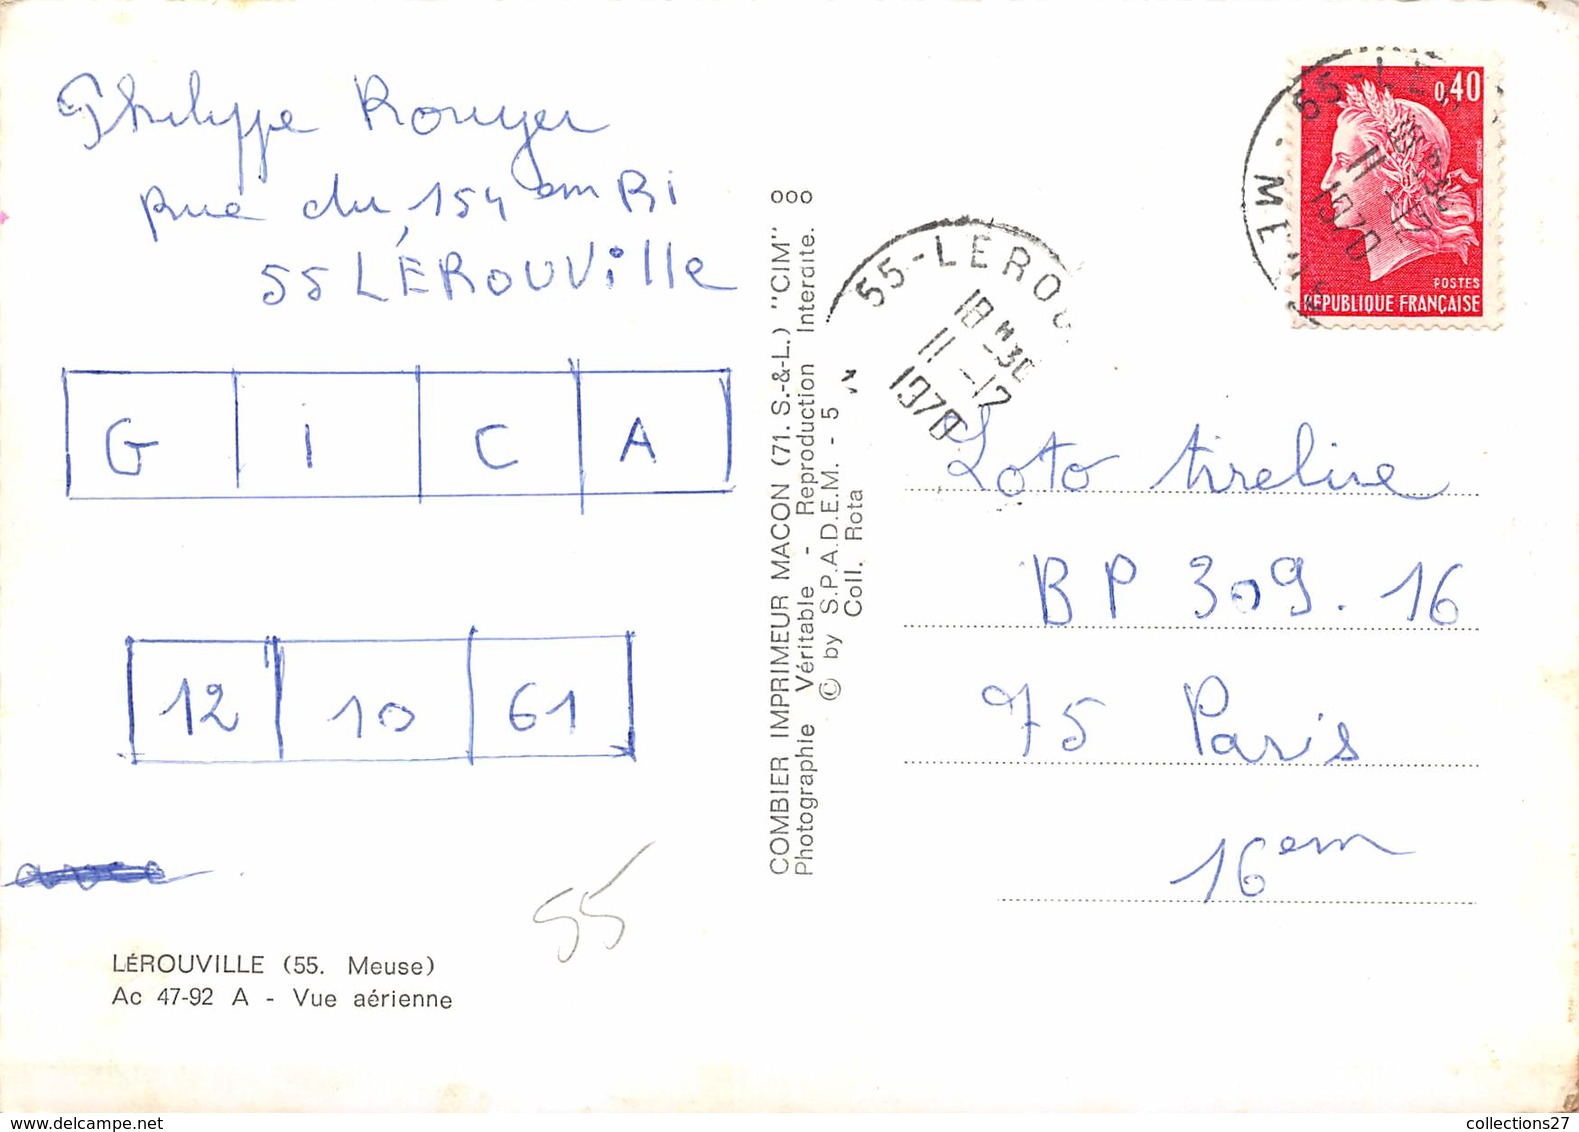 Philippe Rouyer
Rue du 154 em Ri
55 LÉROUVille
G I C A
12 10 61
avec
55
LÉROUVILLE (55. Meuse)
Ac 47-92 A - Vue aérienne
COMBIER IMPRIMEUR MACON (71. S.-&-L.) "CIM" ooo
Photographie Véritable - Reproduction Interdite.
© by S.P.A.D.E.M. - 5
Coll. Rota
55-LEROU
18 H30
11-12
1970
0,40
POSTES
REPUBLIQUE FRANÇAISE
55-LER
18 H30
11-12
1970
MEUSE
Loto tirelire
BP 309.16
75 Paris
16em
collections27